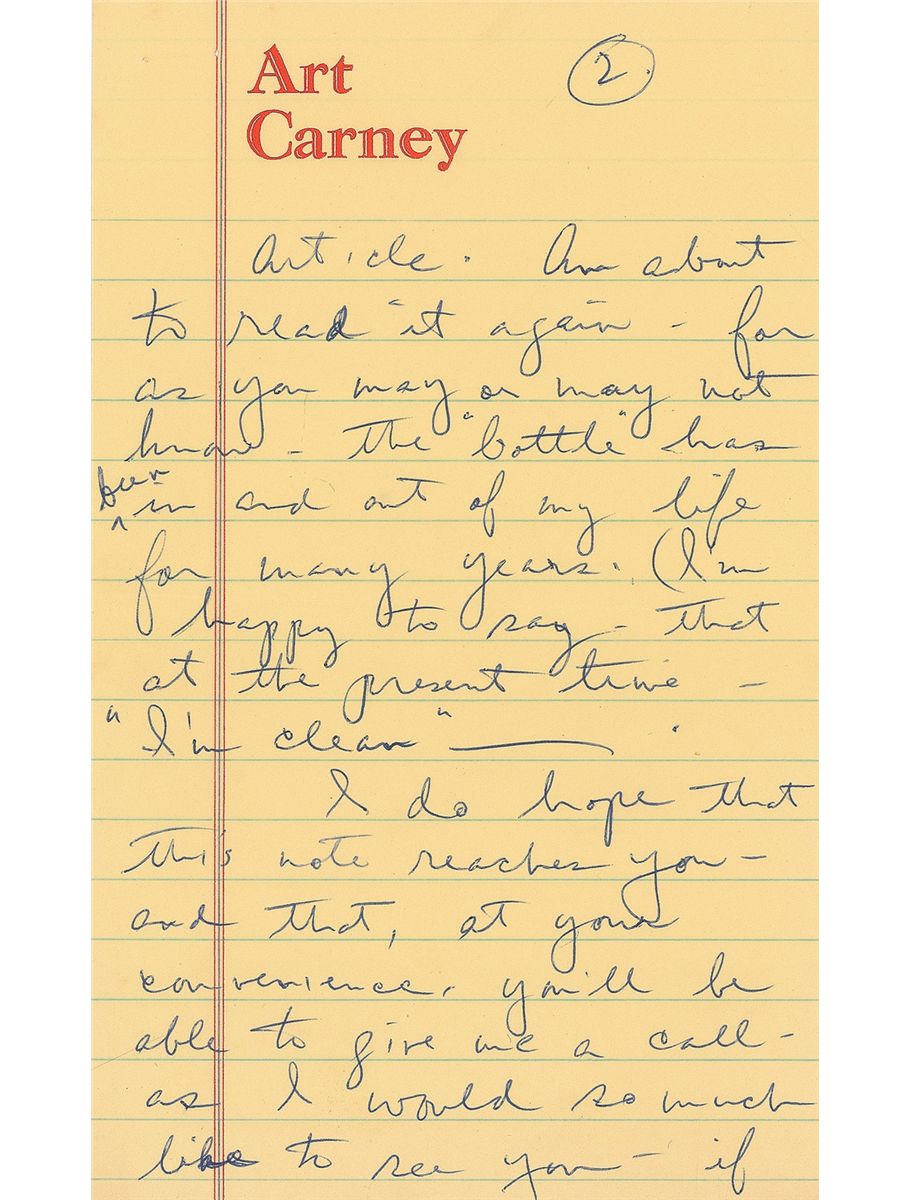 Art
Carney
2.
Article. Am about
to read it again - for
as you may or may not
know - the "bottle" has
been
in and out of my life
for many years. (I'm
happy to say - that
at the present time -
"I'm clean" — .
I do hope that
this note reaches you -
and that, at your
convenience, you'll be
able to give me a call -
as I would so much
like to see you - if